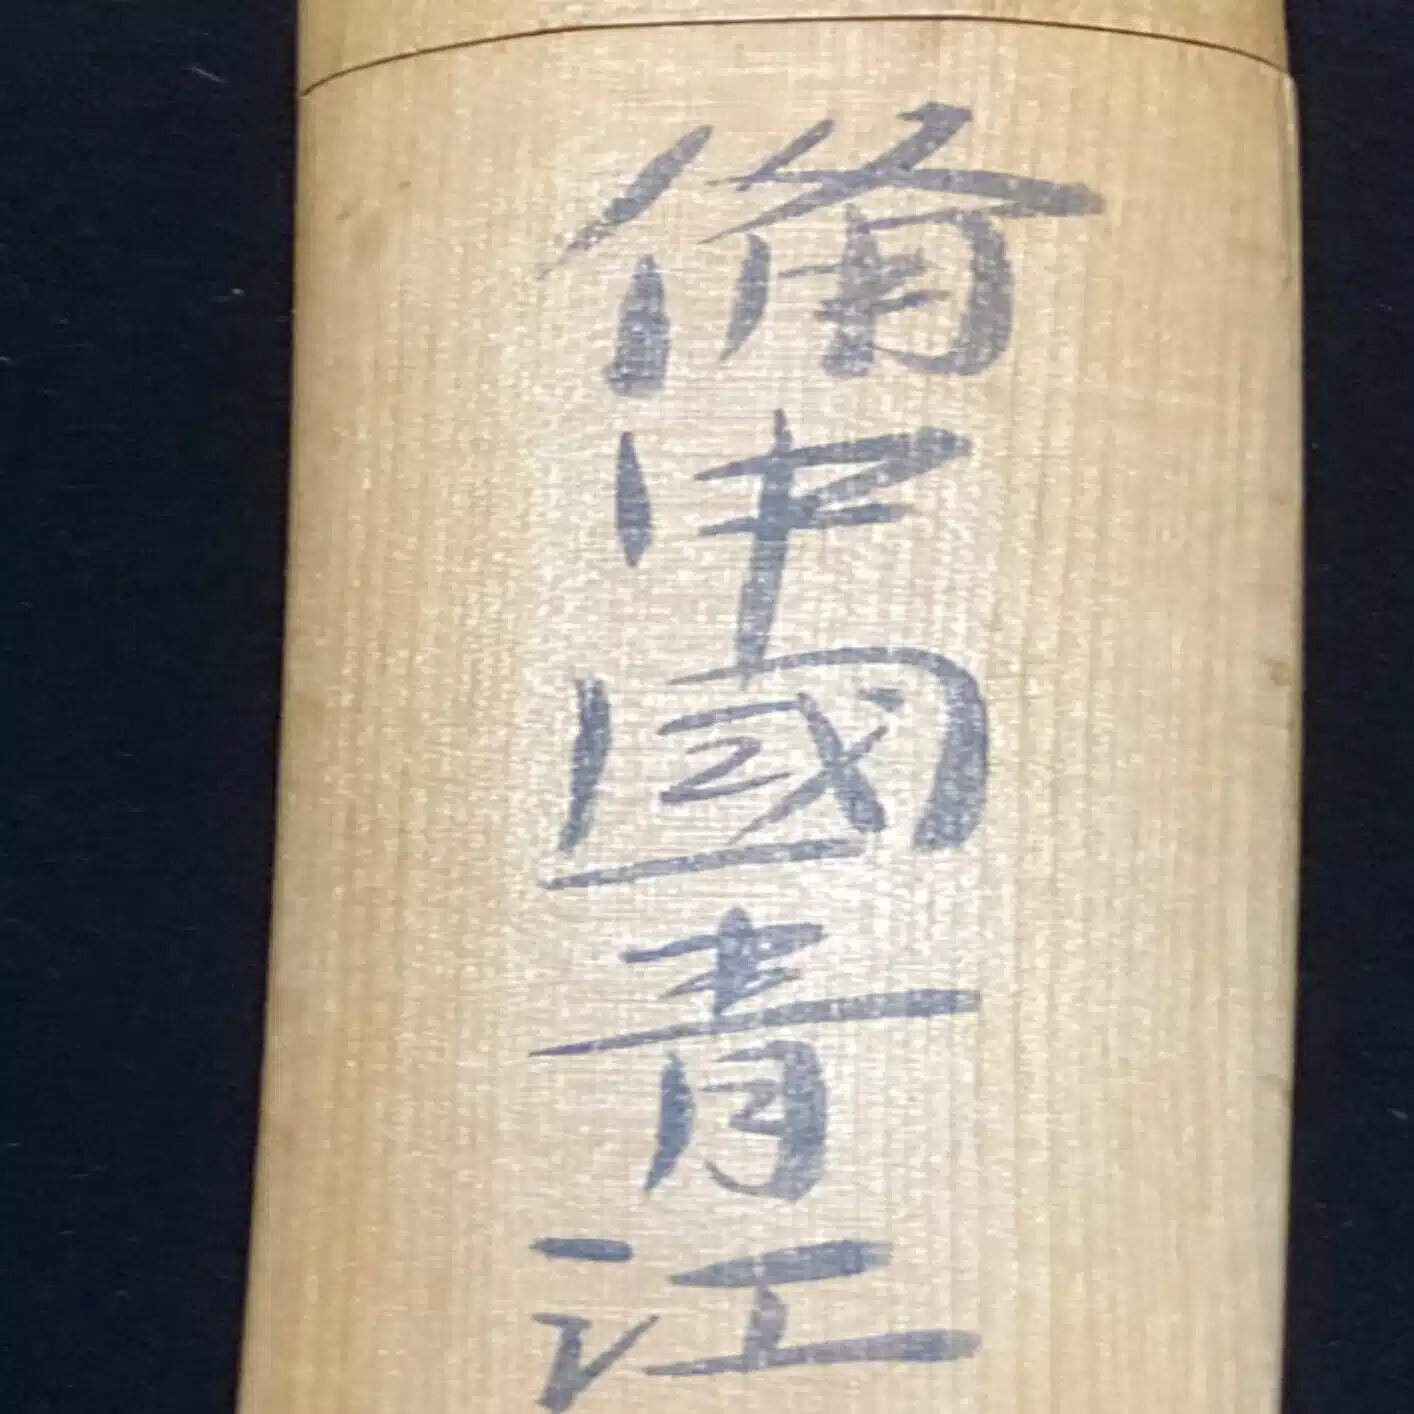 備中國青江